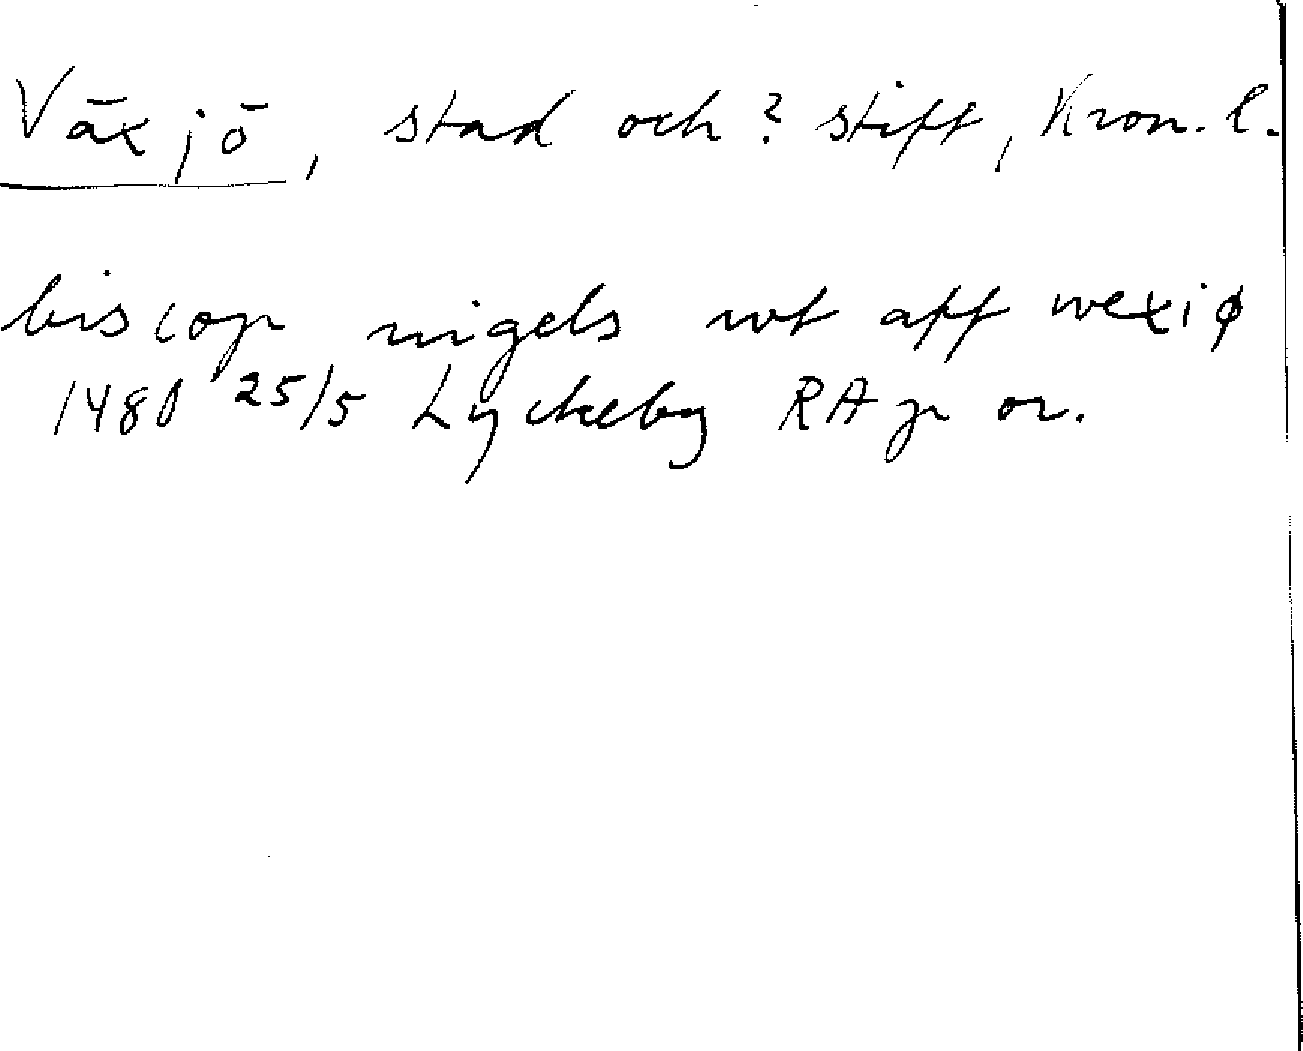 Växjö, stad och? stift, Kron. l.
biscop nigels wt aff wexiø
1480 25/5 Lyckeby RA p or.